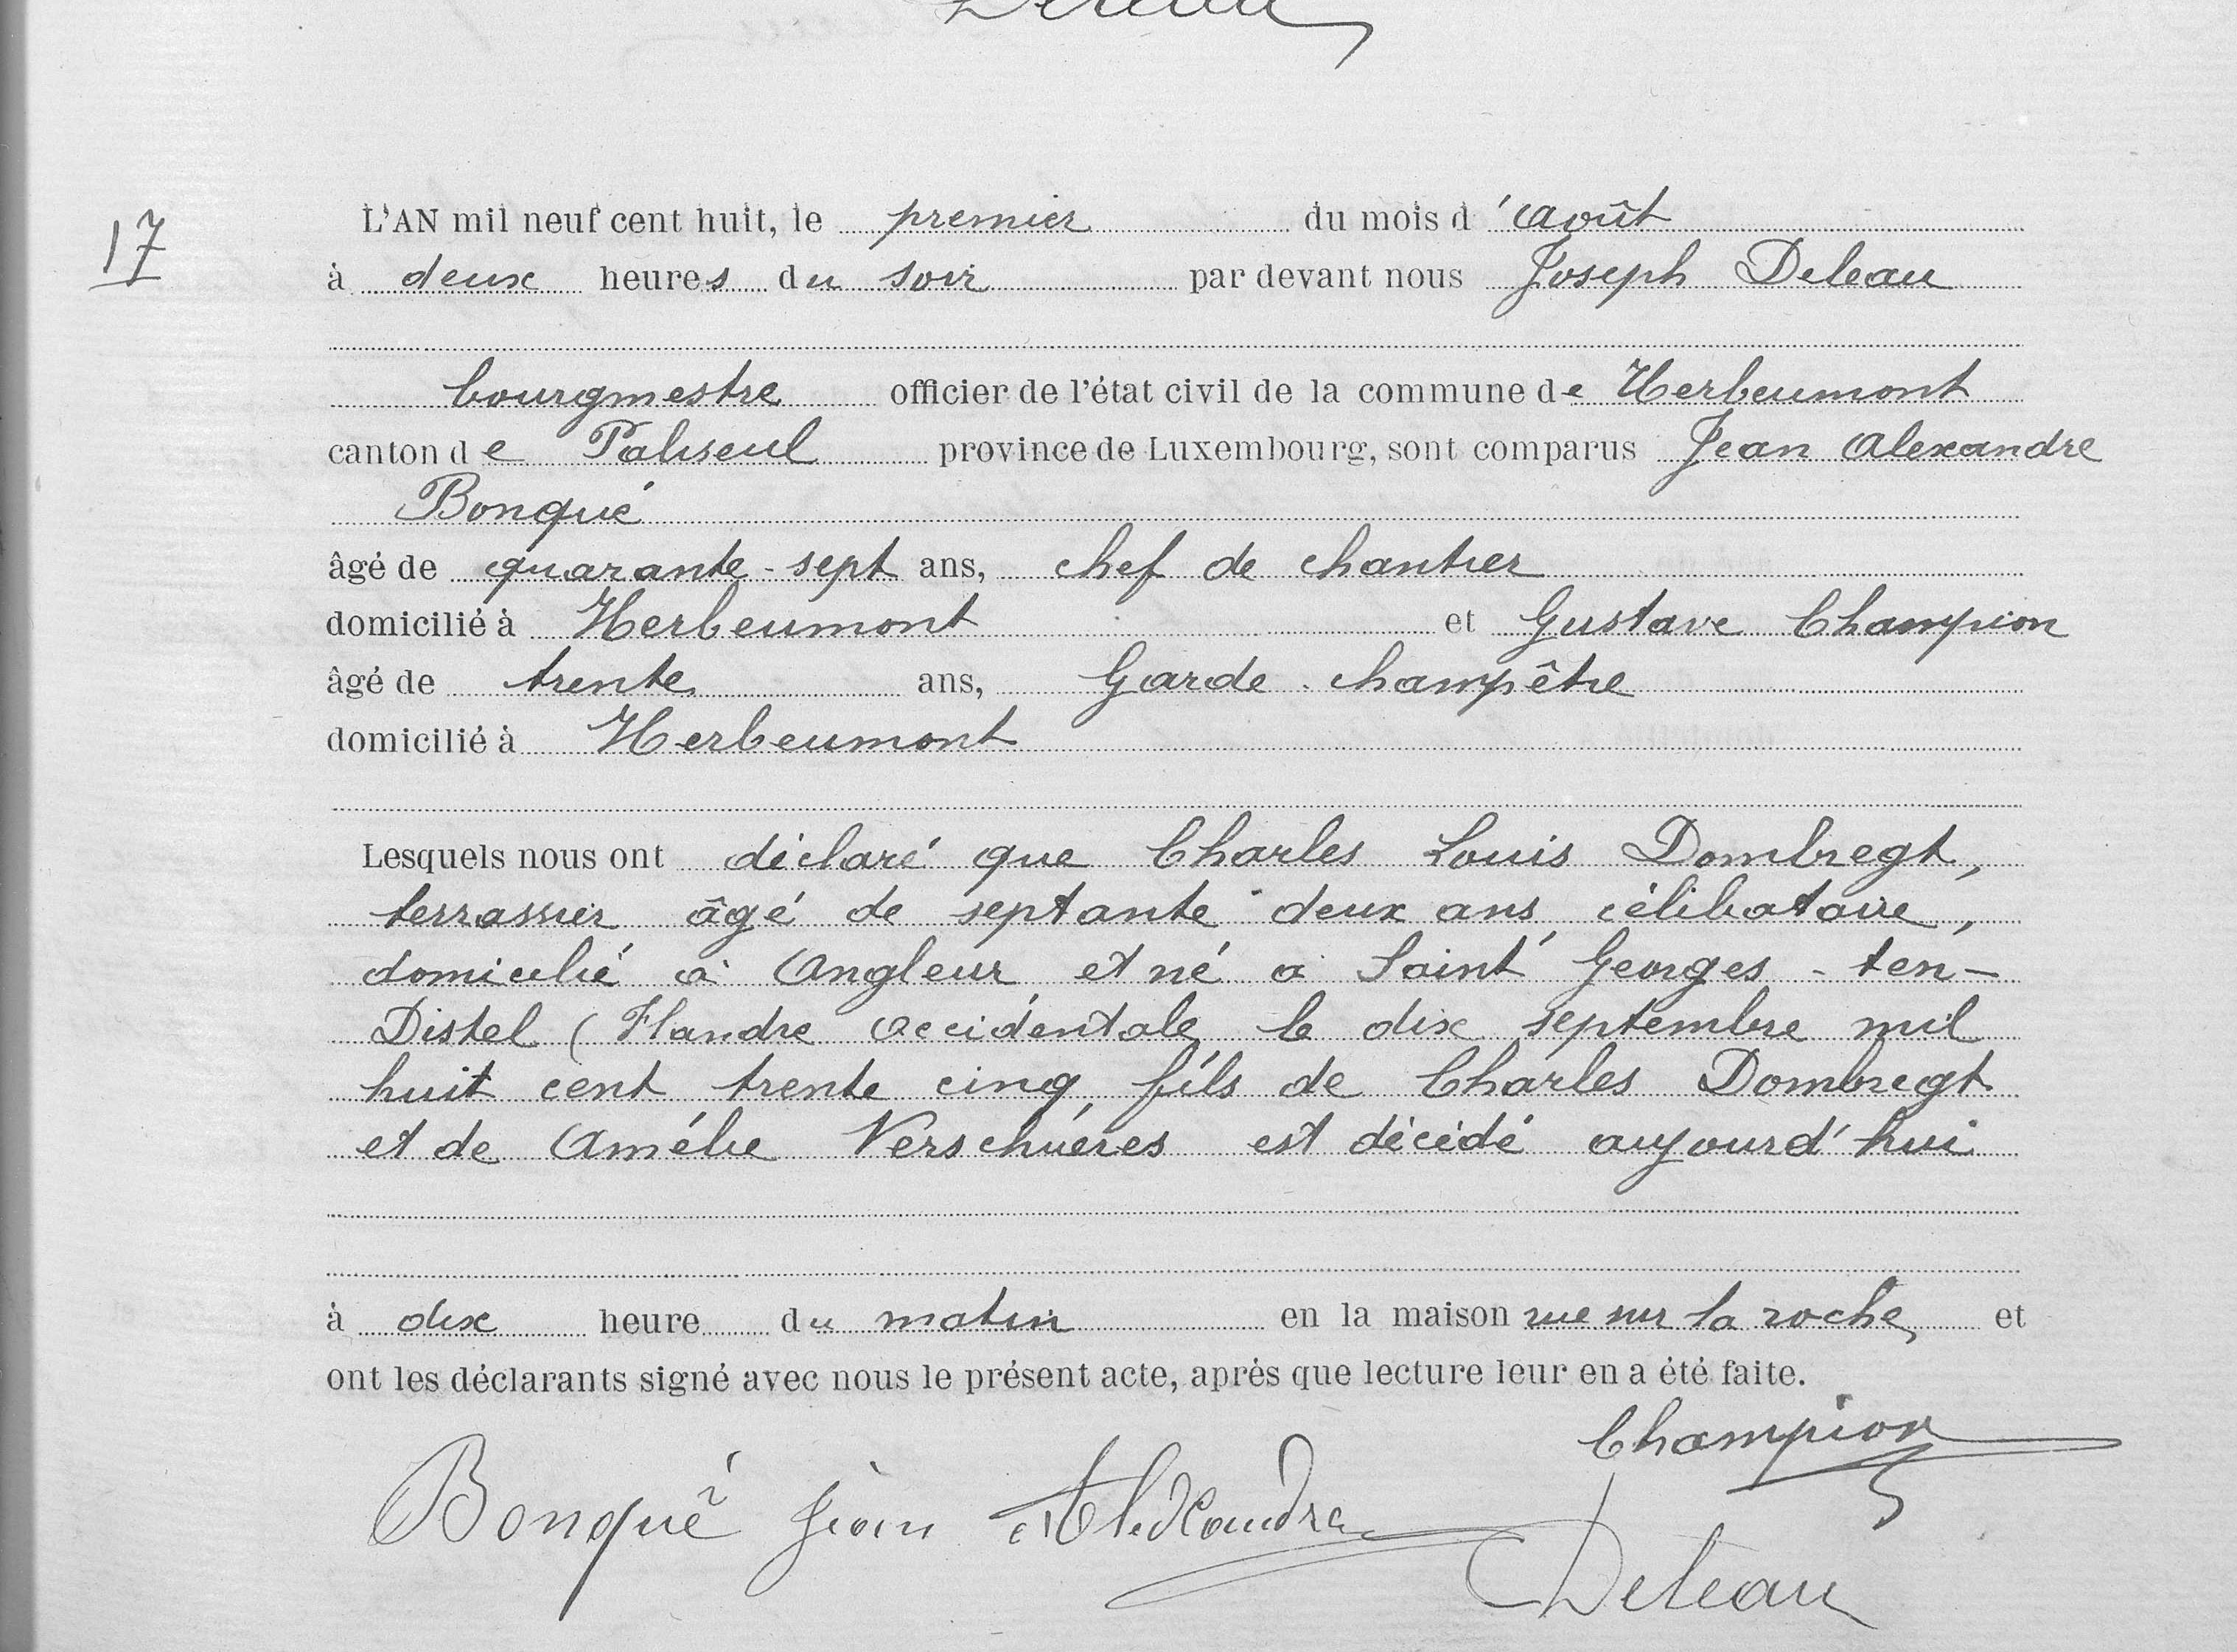 Deleau
17
L'AN mil neuf cent huit, le premier du mois d'août
à deux heures du soir par devant nous Joseph Deleau
bourgmestre officier de l'état civil de la commune de Herbeumont
canton de Paliseul province de Luxembourg, sont comparus Jean Alexandre
Bonqué
âgé de quarante-sept ans, chef de chantier
domicilié à Herbeumont et Gustave Champion
âgé de trente ans, Garde-champêtre
domicilié à Herbeumont
Lesquels nous ont déclaré que Charles Louis Dombregt,
terrassier âgé de septante deux ans, célibataire,
domicilié à Angleur et né à Saint Georges-ten-
Distel (Flandre occidentale le dix septembre mil
huit cent trente cinq, fils de Charles Dombregt
et de Amélie Verschuéres est décédé aujourd'hui
à dix heure du matin en la maison rue sur la roche, et
ont les déclarants signé avec nous le présent acte, après que lecture leur en a été faite.
Champion
Bonqué Jean Alexandre
Deleau